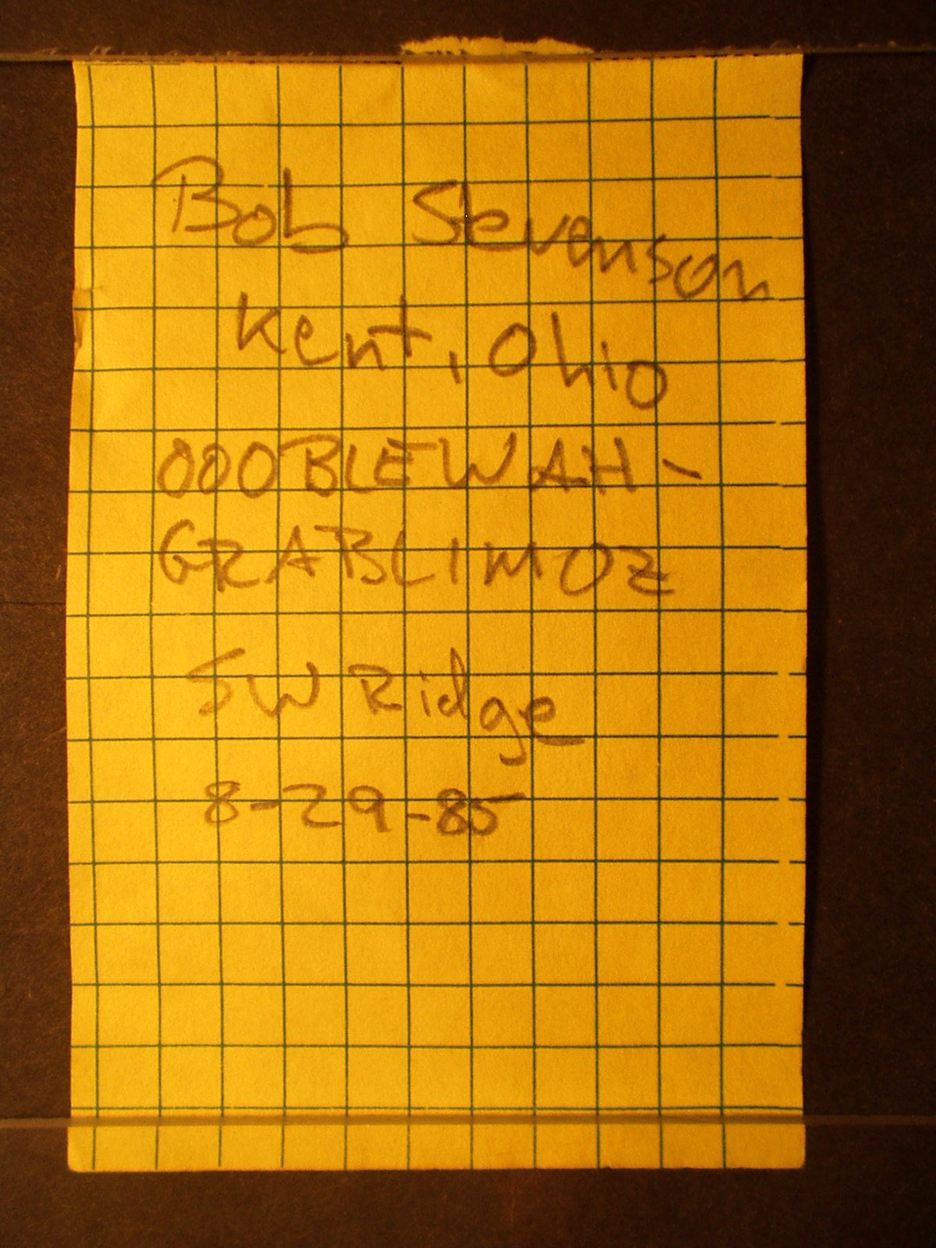 Bob Stevenson
Kent, Ohio
OOOBLEWAH-
GRABLIMOZ
SW Ridge
8-29-85